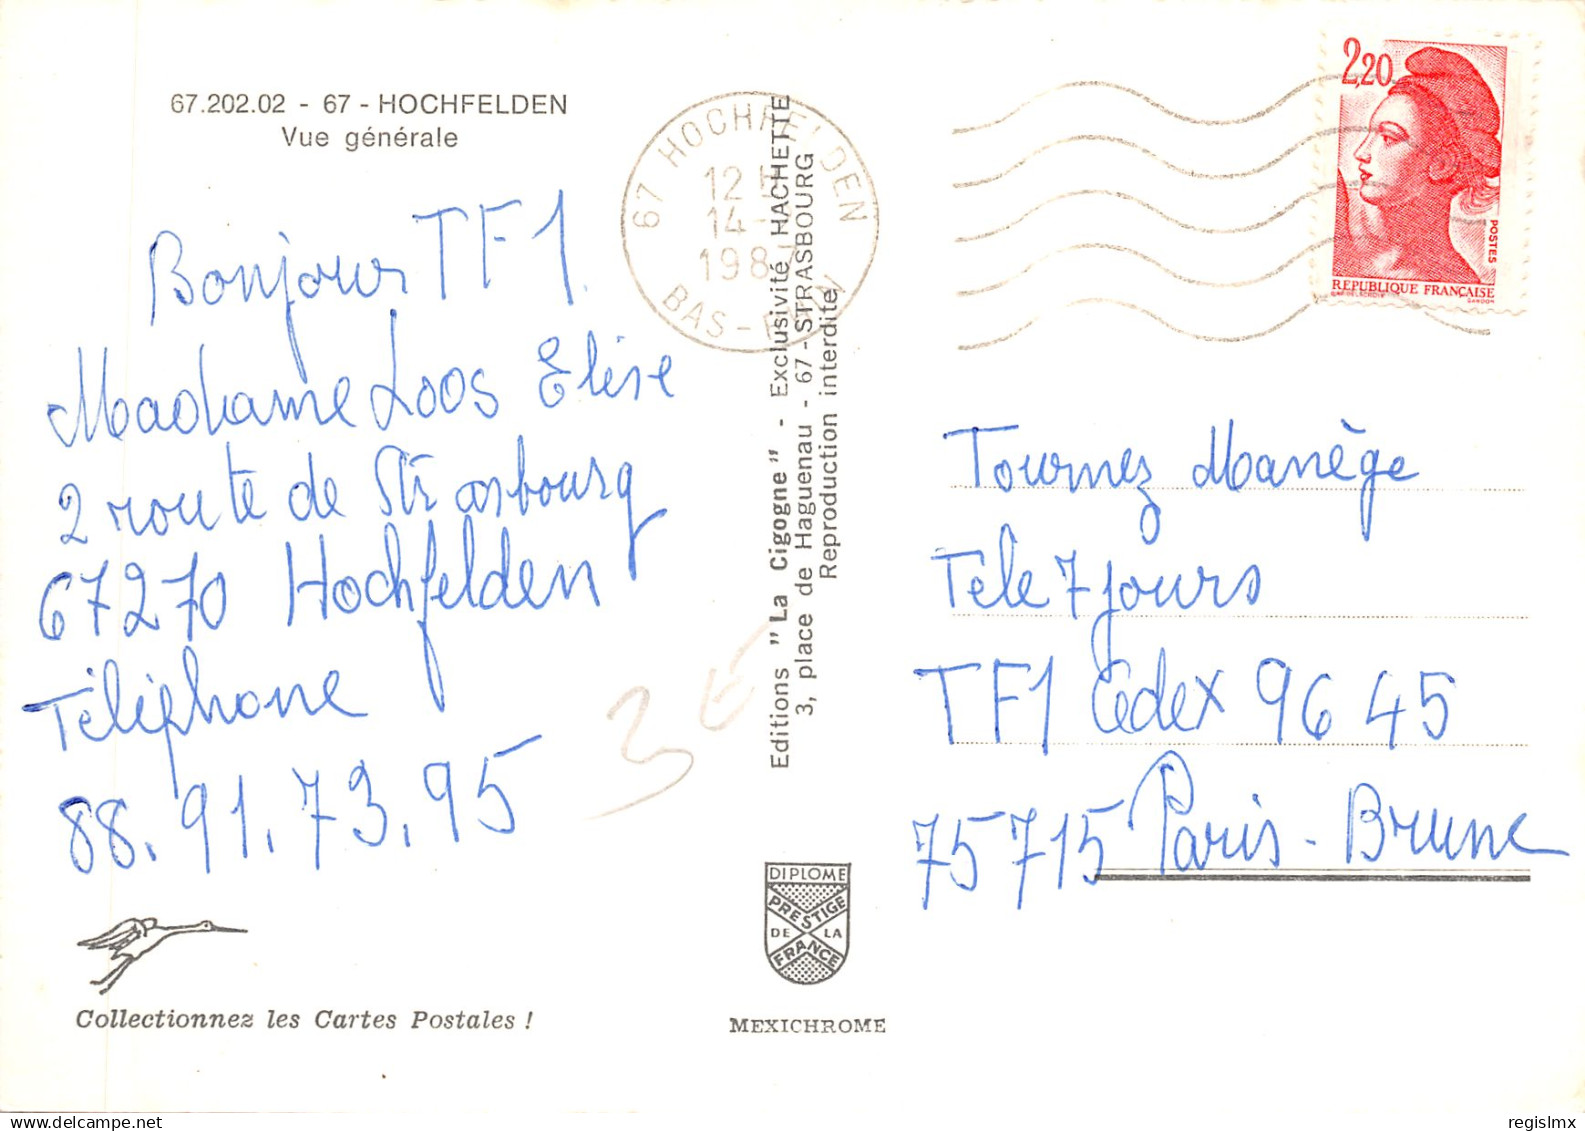 67.202.02 - 67 - HOCHFELDEN
Vue générale
Bonjour TF1.
Madame Loos Elise
2 route de Strasbourg
67270 Hochfelden
Téléphone
88.91.73.95
Collectionnez les Cartes Postales !
67 HOCHFELDEN
12 H
14 -
198
BAS-RHIN
Editions "La Cigogne" - Exclusivité HACHETTE
3, place de Haguenau - 67 - STRASBOURG
Reproduction interdite
3 €
DIPLOME
PRESTIGE
DE LA
FRANCE
MEXICHROME
2,20
POSTES
REPUBLIQUE FRANÇAISE
Tournez Manège
Tele 7 jours
TF1 Cedex 96 45
75715 Paris-Brune
regislmx